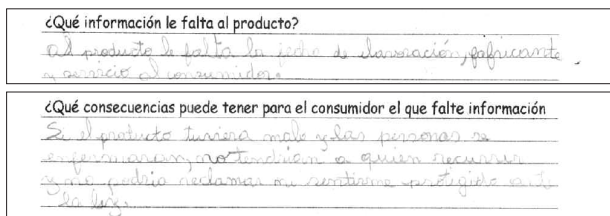 ¿Qué información le falta al producto?
al producto le falta la fecha de elavoración, fabricante
y servicio al consumidor.
¿Qué consecuencias puede tener para el consumidor el que falte información
Si el producto tuviera malo y las personas se
enfermaran, no tendrian a quien recurrir
y no podria reclamar ni sentirme protegido ante
la ley.